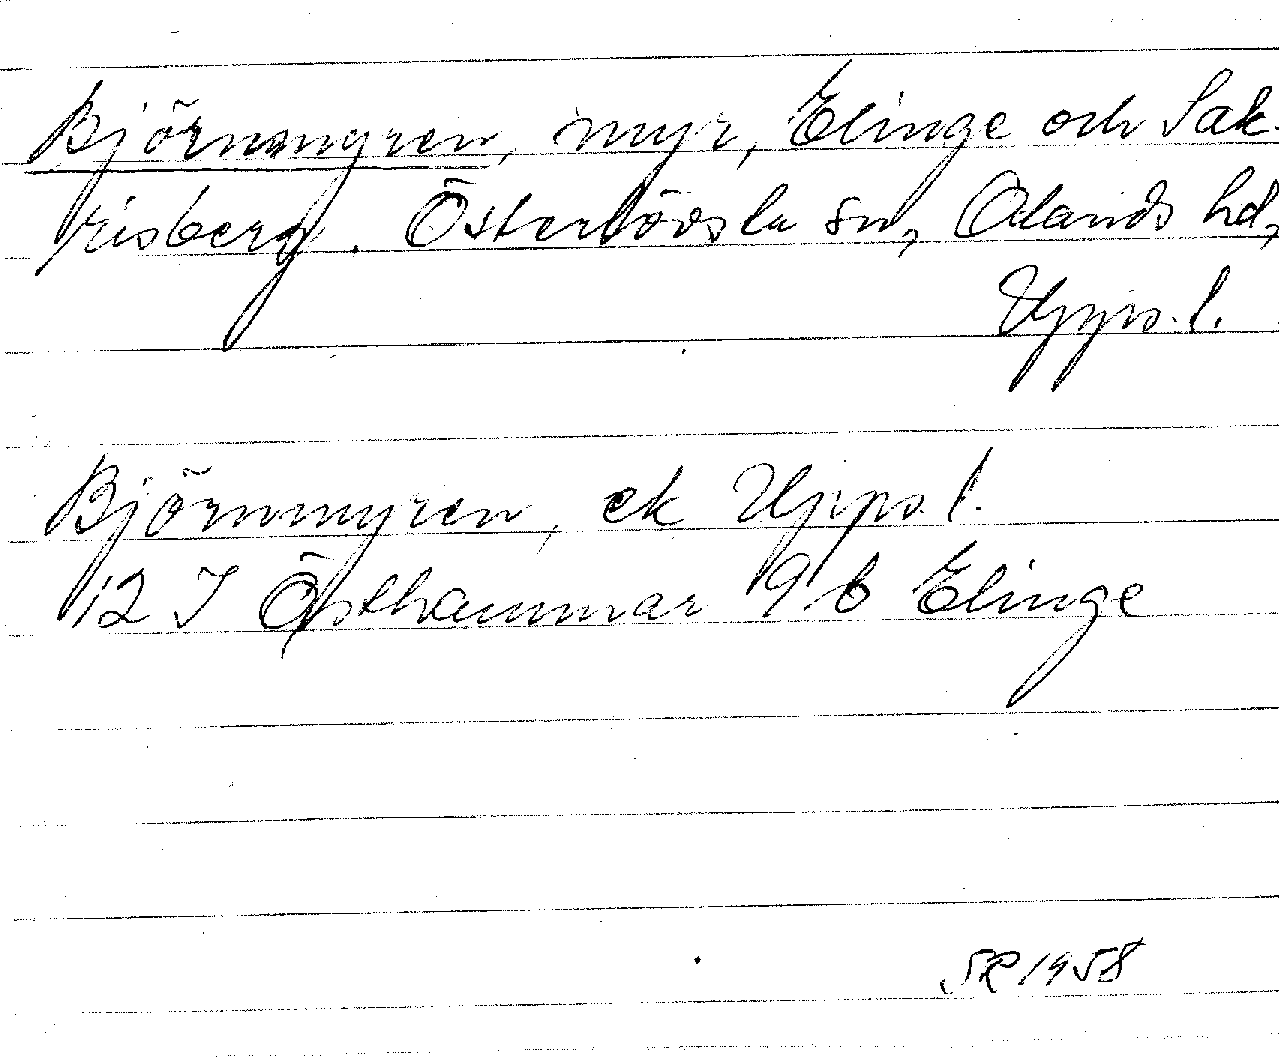 Björnmyren, myr, Elinge och Sak-
risberg. Österlövsta sn, Olands hd,
Upps. l.
Björnmyren, ek Upps. l.
12 I Östhammar 9 b Elinge
SR 1958